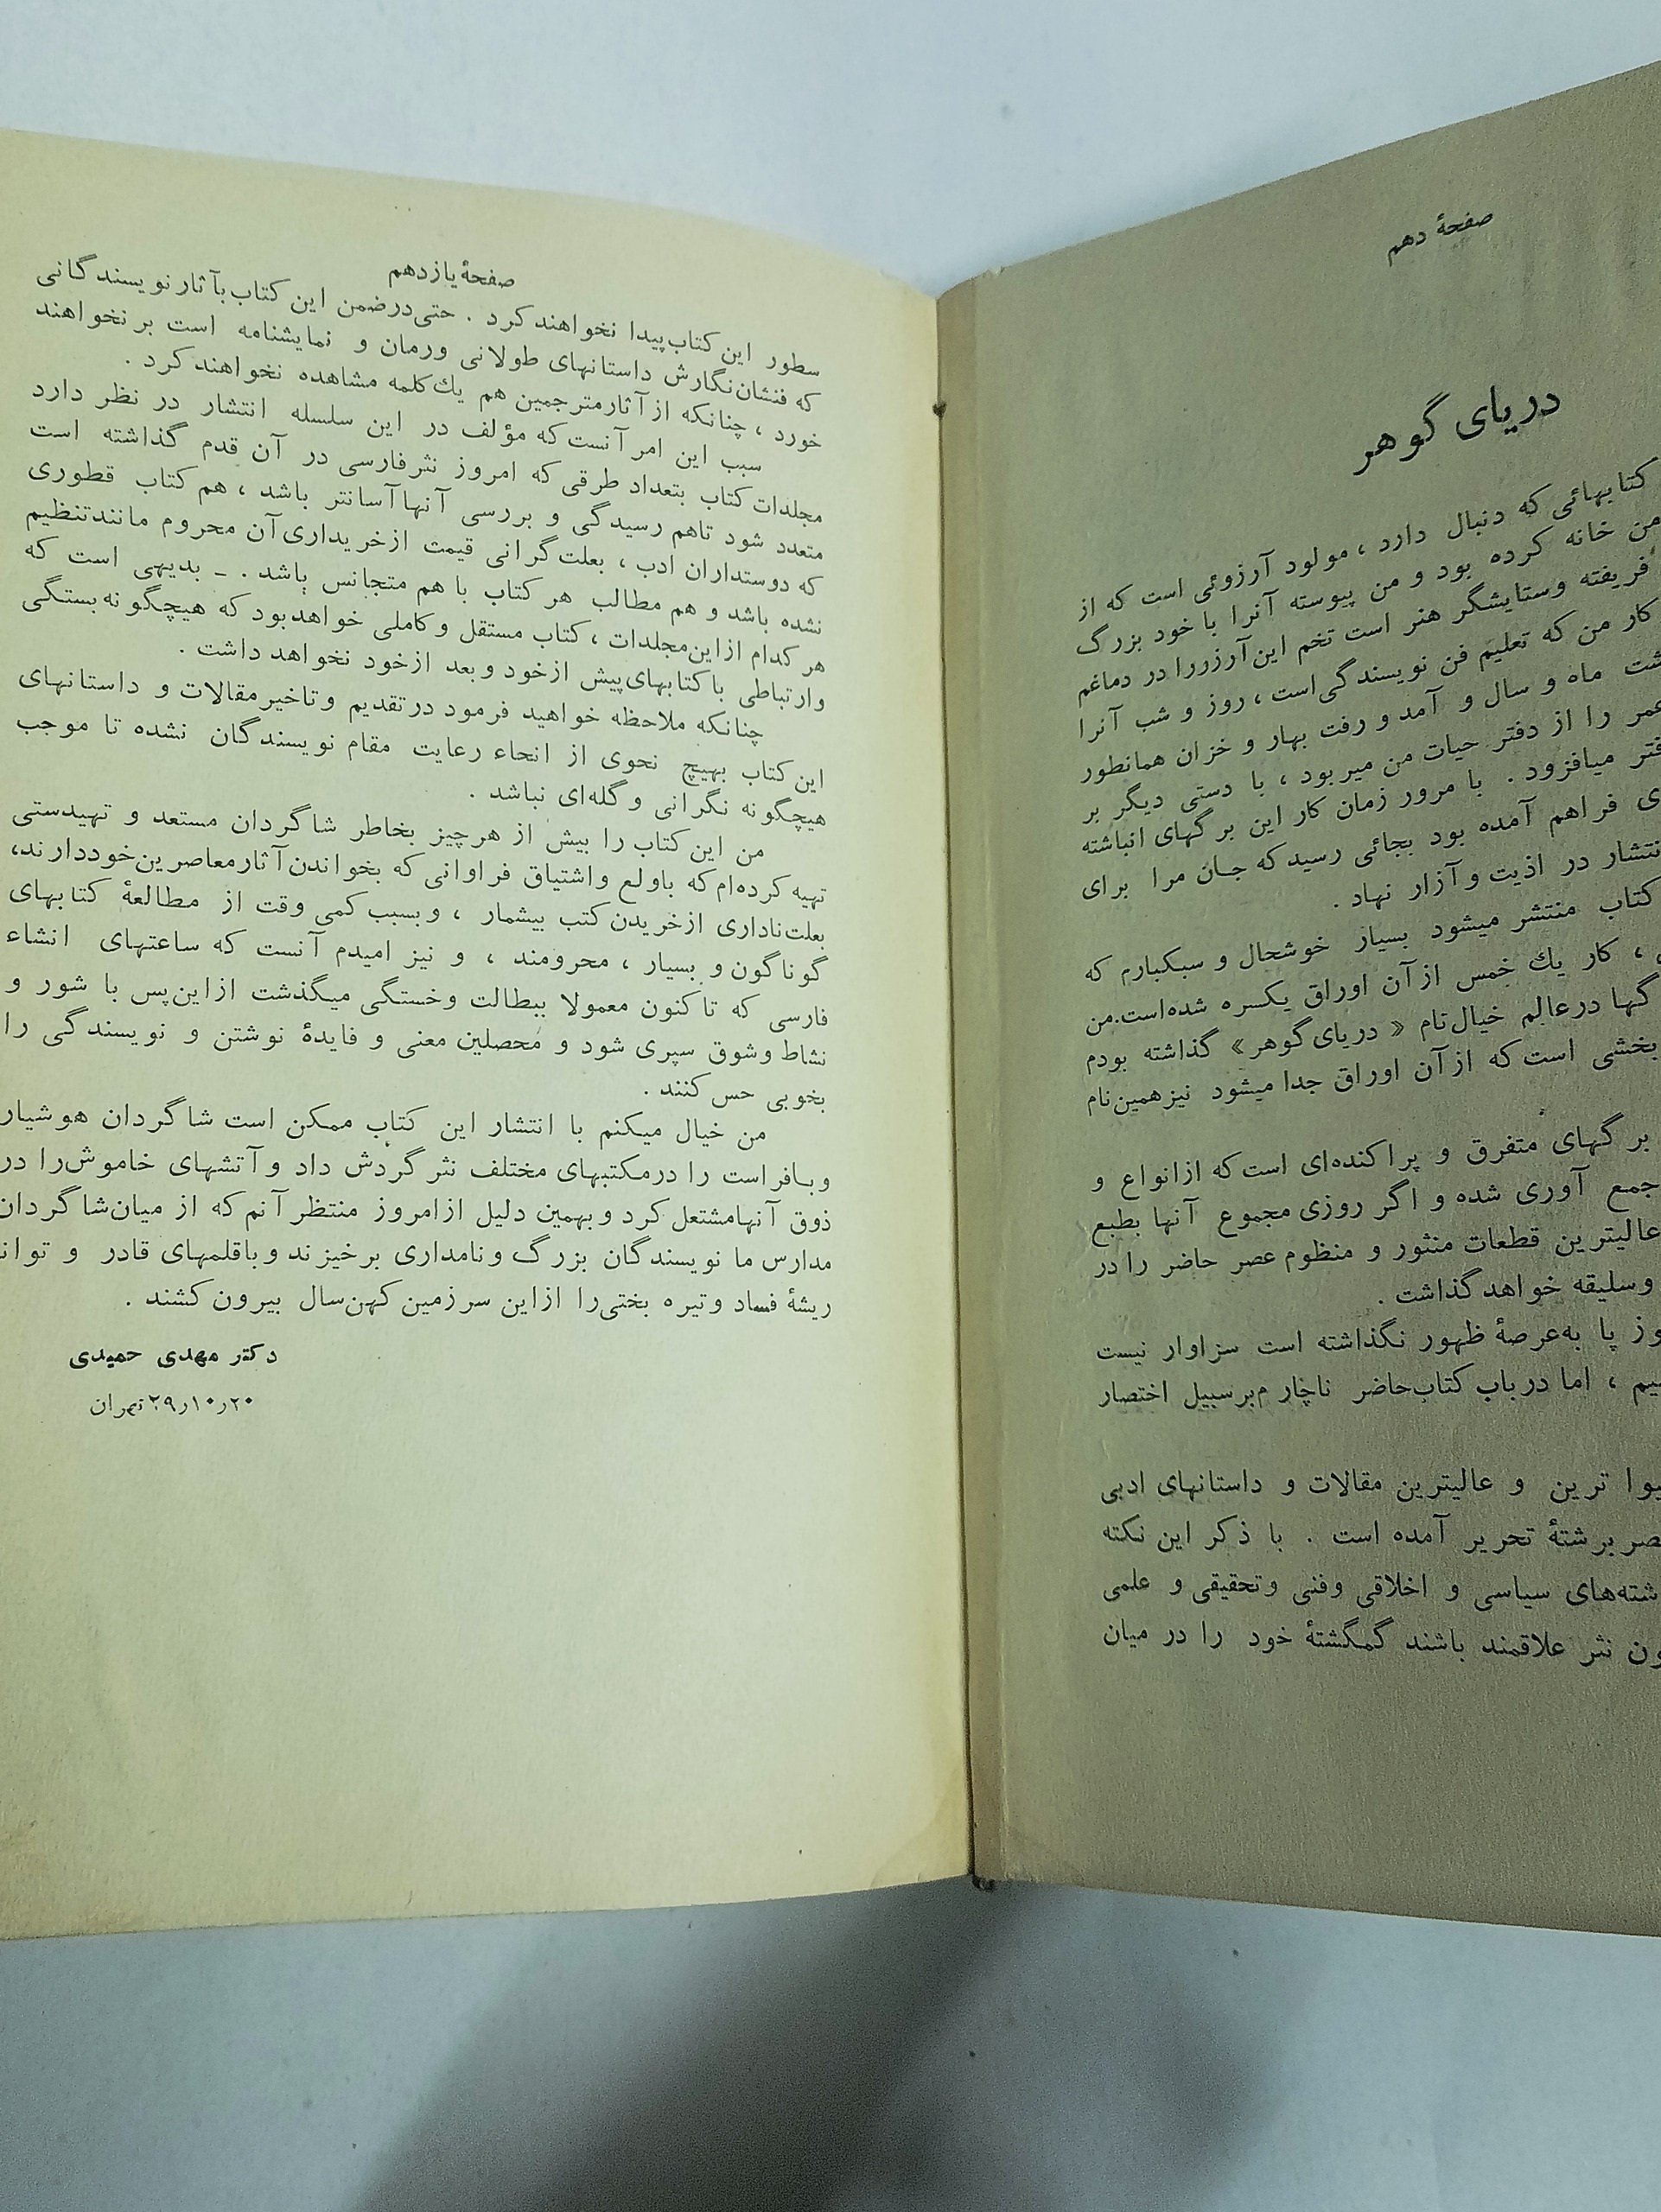 صفحهٔ دهم
دریای گوهر
کتابهائی که دنبال دارد ، مولود آرزوئی است که از
من خانه کرده بود و من پیوسته آنرا با خود بزرگ
فریفته وستایشگر هنر است تخم این آرزورا در دماغم
کار من که تعلیم فن نویسندگی است ، روز و شب آنرا
ماه و سال و آمد و رفت بهار و خزان همانطور
را از دفتر حیات من میربود ، با دستی دیگر بر
میافزود . با مرور زمان کار این برگهای انباشته
فراهم آمده بود بجائی رسید که جان مرا برای
در اذیت و آزار نهاد .
کتاب منتشر میشود بسیار خوشحال و سبکبارم که
، کار یك خمس از آن اوراق یکسره شده است.من
درعالم خیال نام « دریای گوهر» گذاشته بودم
بخشی است که از آن اوراق جدا میشود نیز همین نام
برگهای متفرق و پراکنده‌ای است که ازانواع و
جمع آوری شده و اگر روزی مجموع آنها بطبع
عالیترین قطعات منثور و منظوم عصر حاضر را در
وسلیقه خواهد گذاشت .
پا به‌عرصهٔ ظهور نگذاشته است سزاوار نیست
، اما درباب کتاب‌حاضر ناچارم برسبیل اختصار
ترین و عالیترین مقالات و داستانهای ادبی
برشتهٔ تحریر آمده است . با ذکر این نکته
سیاسی و اخلاقی وفنی وتحقیقی و علمی
نثر علاقمند باشند گمگشتهٔ خود را در میان
صفحهٔ یازدهم
سطور این کتاب پیدا نخواهند کرد . حتی درضمن این کتاب بآثار نویسندگانی
که فنشان نگارش داستانهای طولانی ورمان و نمایشنامه است برنخواهند
خورد ، چنانکه از آثار مترجمین هم یك کلمه مشاهده نخواهند کرد .
سبب این امر آنست که مؤلف در این سلسله انتشار در نظر دارد
مجلدات کتاب بتعداد طرقی که امروز نثر فارسی در آن قدم گذاشته است
متعدد شود تاهم رسیدگی و بررسی آنها آسانتر باشد ، هم کتاب قطوری
که دوستداران ادب ، بعلت گرانی قیمت از خریداری آن محروم مانند تنظیم
نشده باشد و هم مطالب هر کتاب با هم متجانس باشد . ـ بدیهی است که
هر کدام ازاین‌مجلدات ، کتاب مستقل و کاملی خواهد بود که هیچگونه بستگی
وارتباطی با کتابهای پیش ازخود و بعد ازخود نخواهد داشت .
چنانکه ملاحظه خواهید فرمود درتقدیم وتاخیر مقالات و داستانهای
این کتاب بهیچ نحوی از انحاء رعایت مقام نویسندگان نشده تا موجب
هیچگونه نگرانی و گله‌ای نباشد .
من این کتاب را بیش از هر چیز بخاطر شاگردان مستعد و تهیدستی
تهیه کرده‌ام که باولع واشتیاق فراوانی که بخواندن آثار معاصرین خود دارند،
بعلت ناداری از خریدن کتب بیشمار ، و بسبب کمی وقت از مطالعهٔ کتابهای
گوناگون و بسیار ، محرومند ، و نیز امیدم آنست که ساعتهای انشاء
فارسی که تاکنون معمولا ببطالت وخستگی میگذشت ازاین پس با شور و
نشاط وشوق سپری شود و محصلین معنی و فایدهٔ نوشتن و نویسندگی را
بخوبی حس کنند .
من خیال میکنم با انتشار این کتاب ممکن است شاگردان هوشیار
وبافراست را درمکتبهای مختلف نثر گردش داد و آتشهای خاموش‌را در
ذوق آنهامشتعل کرد و بهمین دلیل ازامروز منتظر آنم که از میان‌شاگردان
مدارس ما نویسندگان بزرگ و نامداری برخیزند و باقلمهای قادر و توانا
ریشهٔ فساد وتیره بختی‌را ازاین سرزمین کهن‌سال بیرون کشند .
دکتر مهدی حمیدی
۲۹٫۱۰٫۲۰ تهران